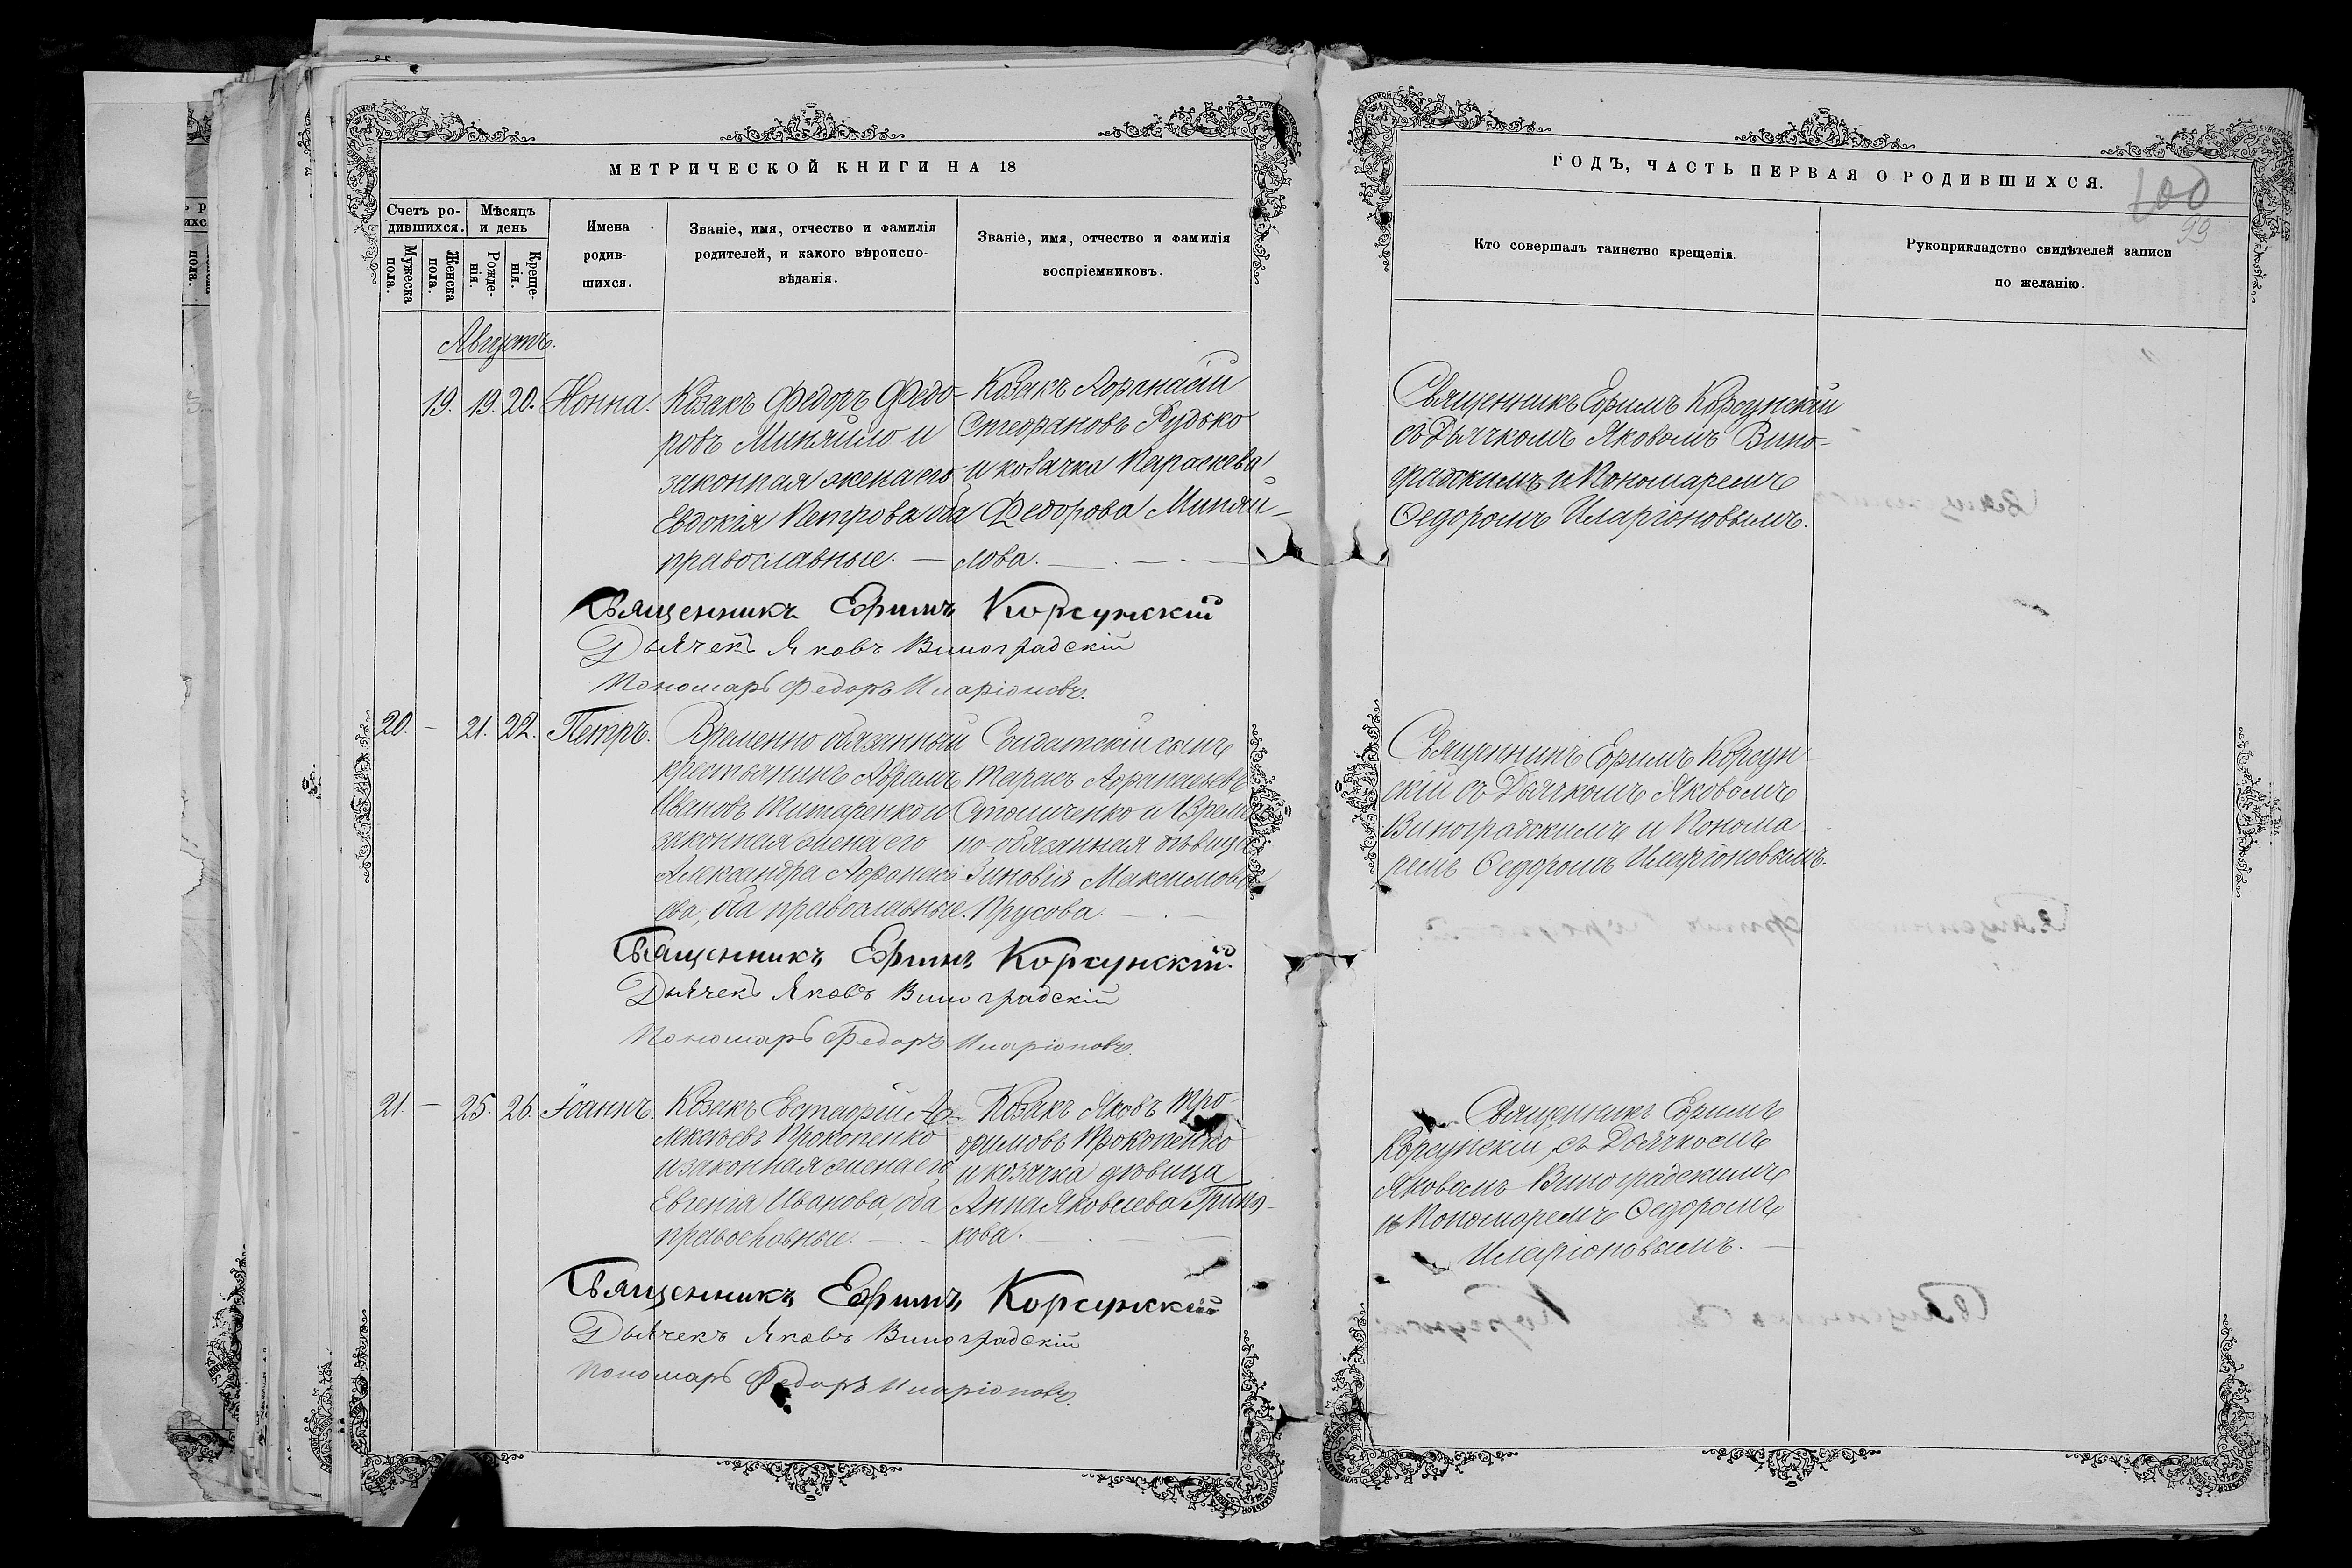 МЕТРИЧЕСКОЙ КНИГИ НА 18
Счетъ ро-
дившихся.
Мѣсяцъ
и день
Мужеска
пола.
Женска
пола.
Рожде-
нія.
Креще-
нія.
Имена
родив-
шихся.
Званіе, имя, отчество и фамилія
родителей, и какого вѣроиспо-
вѣданія.
Званіе, имя, отчество и фамилія
воспріемниковъ.
Августъ.
19. 19. 20. Нонна.
Козакъ Федоръ Федо-
ровъ Миняйло и
законная жена его
Евдокія Петрова оба
православные. —
Козакъ Афанасій
Стефановъ Рудько
и козачка Параскева
Федорова Миняй-
лова.
Священникъ Ефимъ Корсунскій
Дьячекъ Яковъ Виноградскій
Пономарь Федоръ Иларіоновъ.
20. — 21. 22. Петръ.
Временно-обязанный
крестьянинъ Абрамъ
Ивановъ Титаренко и
законная жена его
Александра Афонась
ева, оба православные.
Солдатскій сынъ
Тарасъ Афанасьевъ
и Време
но-обязанная дѣвица
Зиновія Максимова
Прусова.
Священникъ Ефимъ Корсунскій.
Дьячекъ Яковъ Виноградскій
Пономарь Федоръ Иларіоновъ.
21. — 25. 26. Іоаннъ.
Козакъ Евстафій А-
лексѣевъ Прокопенко
и законная жена его
Евгенія Иванова, оба
православные.
Козакъ Яковъ Тро-
фимовъ Прокопенко
и козачка дѣвица
Анна Яковлева Гринь-
кова.
Священникъ Ефимъ Корсунскій
Дьячекъ Яковъ Виноградскій
Пономарь Федоръ Иларіоновъ.
ГОДЪ, ЧАСТЬ ПЕРВАЯ О РОДИВШИХСЯ.
100
99
Кто совершалъ таинство крещенія.
Рукоприкладство свидѣтелей записи
по желанію.
Священникъ Ефимъ Корсунскій
съ Дьячкомъ Яковомъ Вино-
градскимъ и Пономаремъ
Ѳедоромъ Иларіоновымъ.
Священникъ Ефимъ Корсун-
скій съ Дьячкомъ Яковомъ
Виноградскимъ и Понома
ремъ Ѳедоромъ Иларіоновымъ.
Священникъ Ефимъ
Корсунскій, съ Дьячкомъ
Яковомъ Виноградскимъ
и Пономоремъ Ѳедоромъ
Иларіоновымъ. —